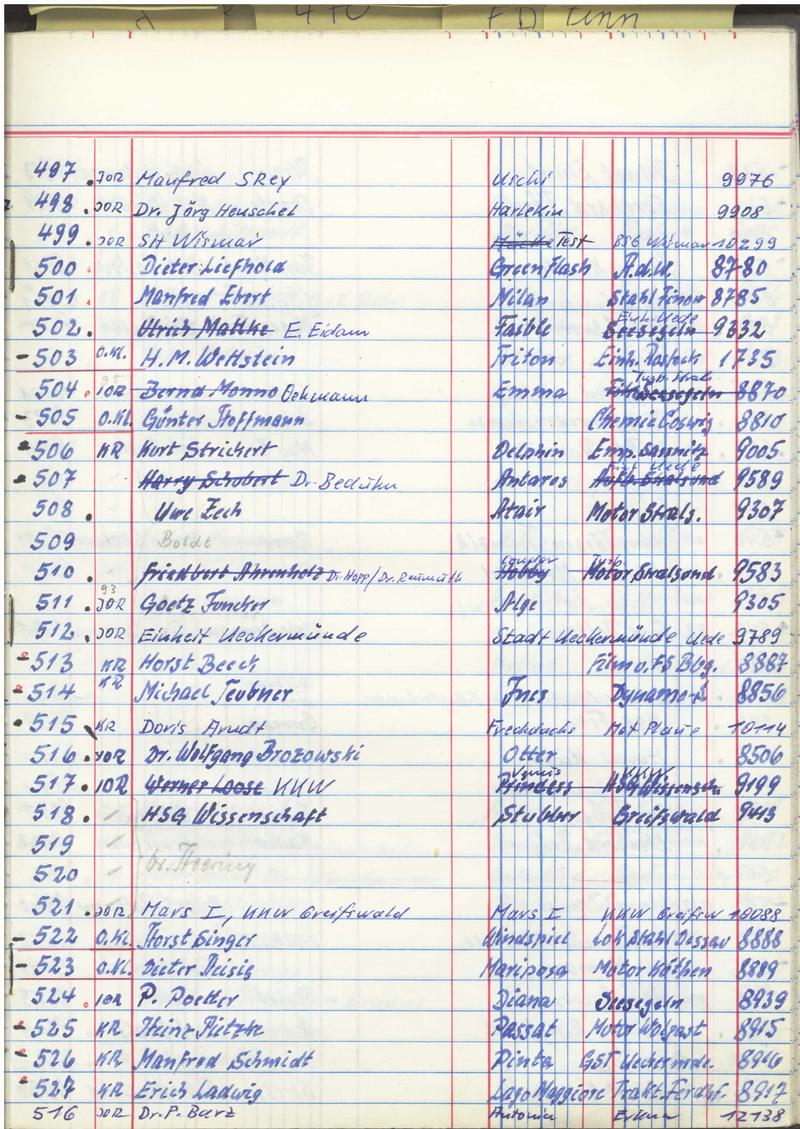 497 . JOR Manfred SRey Uschi 9976
498 . JOR Dr. Jörg Heuschel Harlekin 9908
499 . JOR SH Wismar Test BSG Wismar 10299
500 . Dieter Liefhold Greenflash A.d.W. 8780
501 . Manfred Ebert Milan Stahl Finow 8785
Einh. Uede
502 . Ulrich Mattke E. Eidam Faible Seesegeln 9332
-503 O.Kl. H.M. Wettstein Triton Einh. Rostock 1735
504 . JOR Bernd Manno Oehmann Emma Seesegeln 8870
- 505 O.Kl. Günter Hoffmann Chemie Coswig 8810
506 KR Kurt Strichert Delphin Emp. Sassnitz 9005
507 Harry Schobert Dr. Beduhn Antares 9589
508 . Uwe Zech Atair Motor Strals. 9307
509 Boldt
510 . Friedbert Ahrenholz Dr. Hopp/Dr. Reimuth Hobby Motor Stralsund 9583
93
511 . JOR Goetz Funcher Alge 9305
512 . JOR Einheit Ueckermünde Stadt Ueckermünde Uede 9789
-513 KR Horst Beeck Film u. FS Bbg. 8887
-514 KR Michael Teubner Ines Dynamo 8856
515 KR Doris Arndt Frechdachs Mot Plaue 10114
516 . JOR Dr. Wolfgang Brozowski Otter 8506
Venus KKW
517 . JOR Werner Loose KKW Princess HSG Wissensch. 9199
518 . HSG Wissenschaft Stubber Greifswald 9413
519
520
521 . JOR Mars I, KKW Greifswald Mars I KKW Greifsw 10088
- 522 O.Kl. Horst Singer Windspiel Lok Stahl Dessau 8888
- 523 O.Kl. Dieter Theisig Mariposa Motor Köthen 8889
524 . JOR P. Poetter Diana Seesegeln 8939
-525 KR Heinz Hietzke Passat Motor Wolgast 8915
- 526 KR Manfred Schmidt Pinta GST Ueckermde. 8916
-527 KR Erich Ladwig Lago Maggiore Trakt. Ferdhf. 8917
516 JOR Dr. P. Barz Antonia Erkner 12138